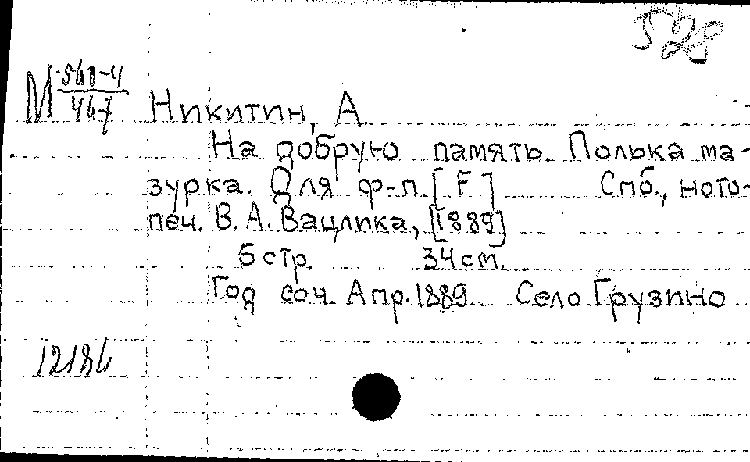 528
М
Никитин, А
На добрую память. Полька ма-
зурка. Для ф-п. [F] Спб., ното-
печ. В. А. Вацлика, [1889]
5 стр. 34 см.
Год соч. Апр. 1889. Село Грузино